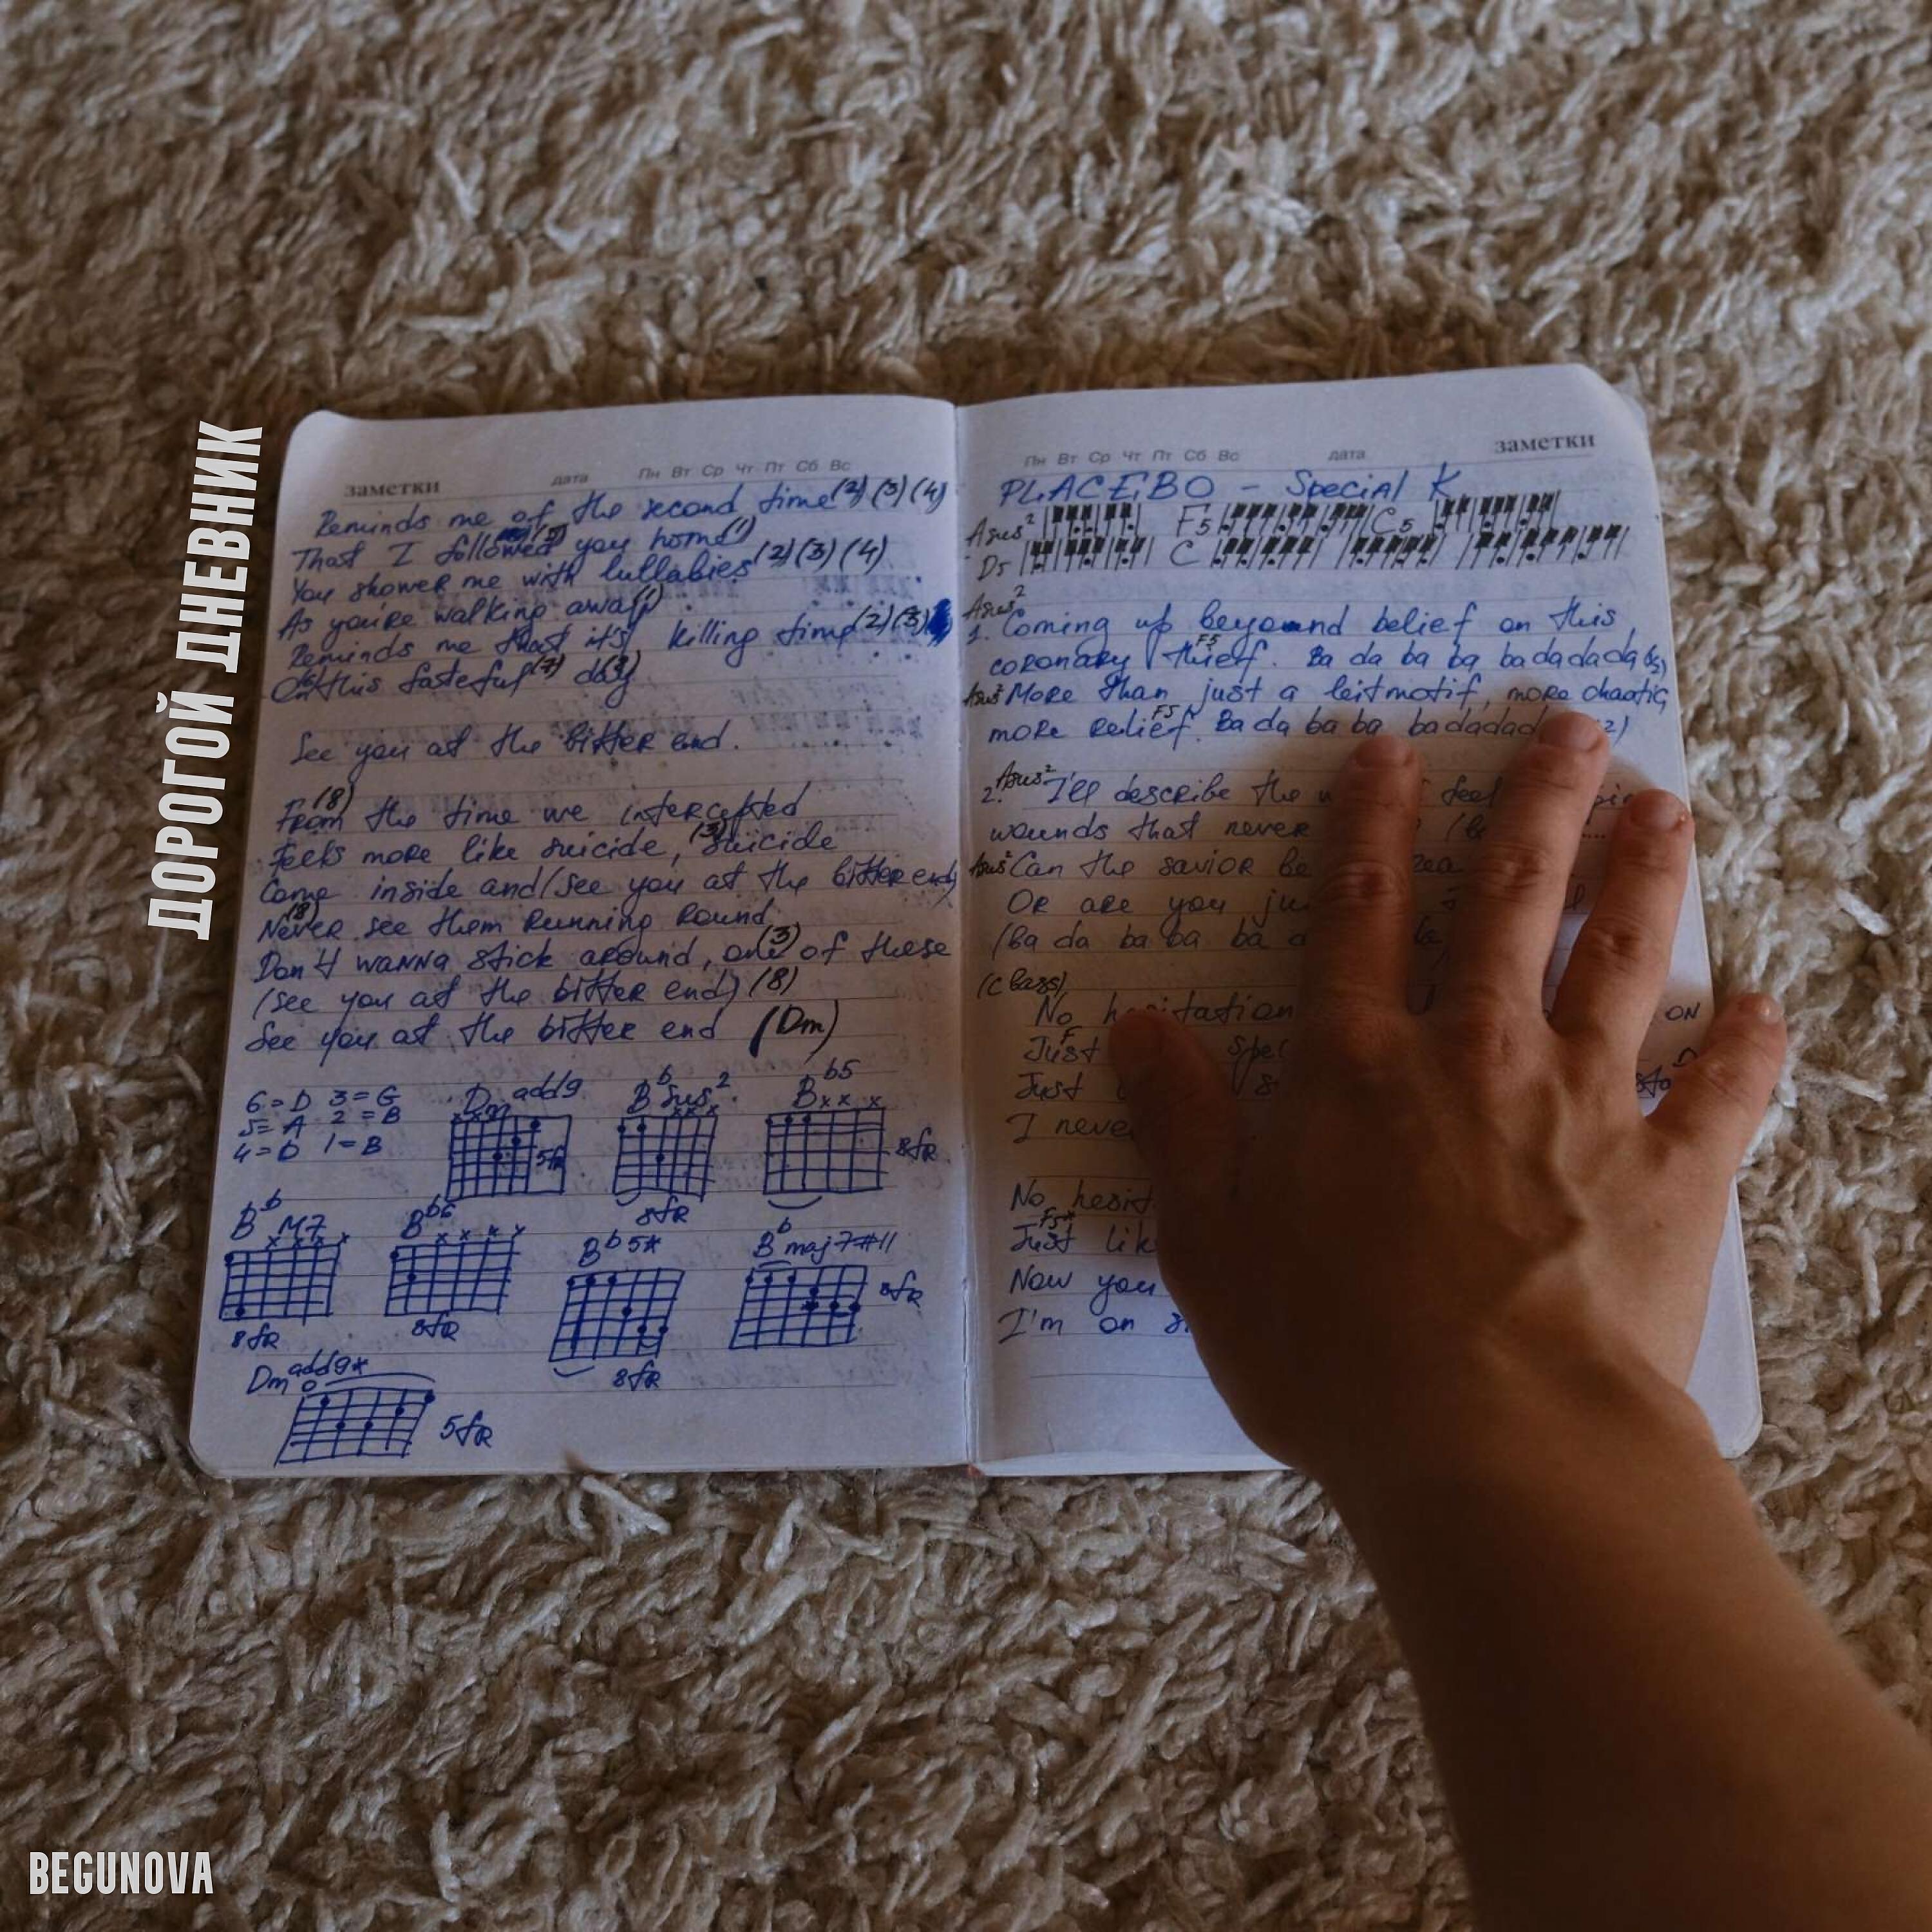 ДОРОГОЙ ДНЕВНИК
заметки дата Пн Вт Ср Чт Пт Сб Вс
Reminds me of the second time (2) (3) (4)
That I followed you home (1)
You shower me with lullabies (2) (3) (4)
As you're walking away (1)
Reminds me that it's killing time (2) (3)
On this fasteful (7) day
See you at the bitter end.
(8)
From the time we intercepted
Feels more like suicide, (3) suicide
Come inside and (see you at the bitter end)
(8)
Never see them Running Round
Don't wanna stick around, one (3) of these
(see you at the bitter end) (8)
See you at the bitter end (Dm)
6=D 3=G
5=A 2=B
4=D 1=B
Dm add9 5fR
Bb sus2 8fR
Bb5 8fR
Bb M7 8fR
Bb6 8fR
Bb5* 8fR
Bb maj7#11 8fR
Dm add9* 5fR
Пн Вт Ср Чт Пт Сб Вс дата заметки
PLACEBO - Special K
Asus2 F5 C5
D5 C
Asus2
1. Coming up beyound belief on this
coronary thief. Ba da ba ba ba da da da
F5
Asus2 More than just a leitmotif, more chaotic,
more relief. Ba da ba ba ba da da d
F5
2. Asus2 I'll describe the feel
wounds that never
Asus2 Can the savior be
Or are you ju
(Ba da ba ba ba
(C bass)
No hesitation ON
F
Just spe
Just
I neve
No hesit
F5*
Just lik
Now you
I'm on
BEGUNOVA